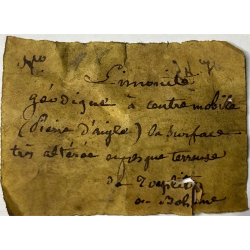 No
Limonite
géodique à centre mobile
(Pierre d'aigle) Sa surface
très altérée et presque terreuse
de Toeplitz
en Bohème